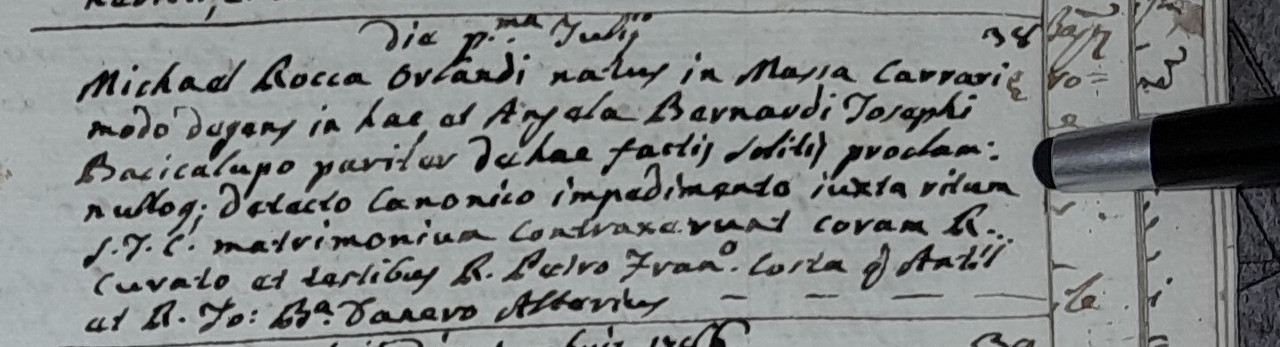 Die p.ma Julij 38
Michael Rocca Orlandi natus in Massa Carrarię
modò degens in hac et Angela Bernardi Josephi
Bacicalupo pariter de hac factis solitis proclam:
nulloq; detecto Canonico impedimento iuxta ritum
S.T.C. matrimonium contraxerunt coram R.
Curato et testibus R. Petro Fran.o Costa
et R. Jo: Ba. Danero Alterius